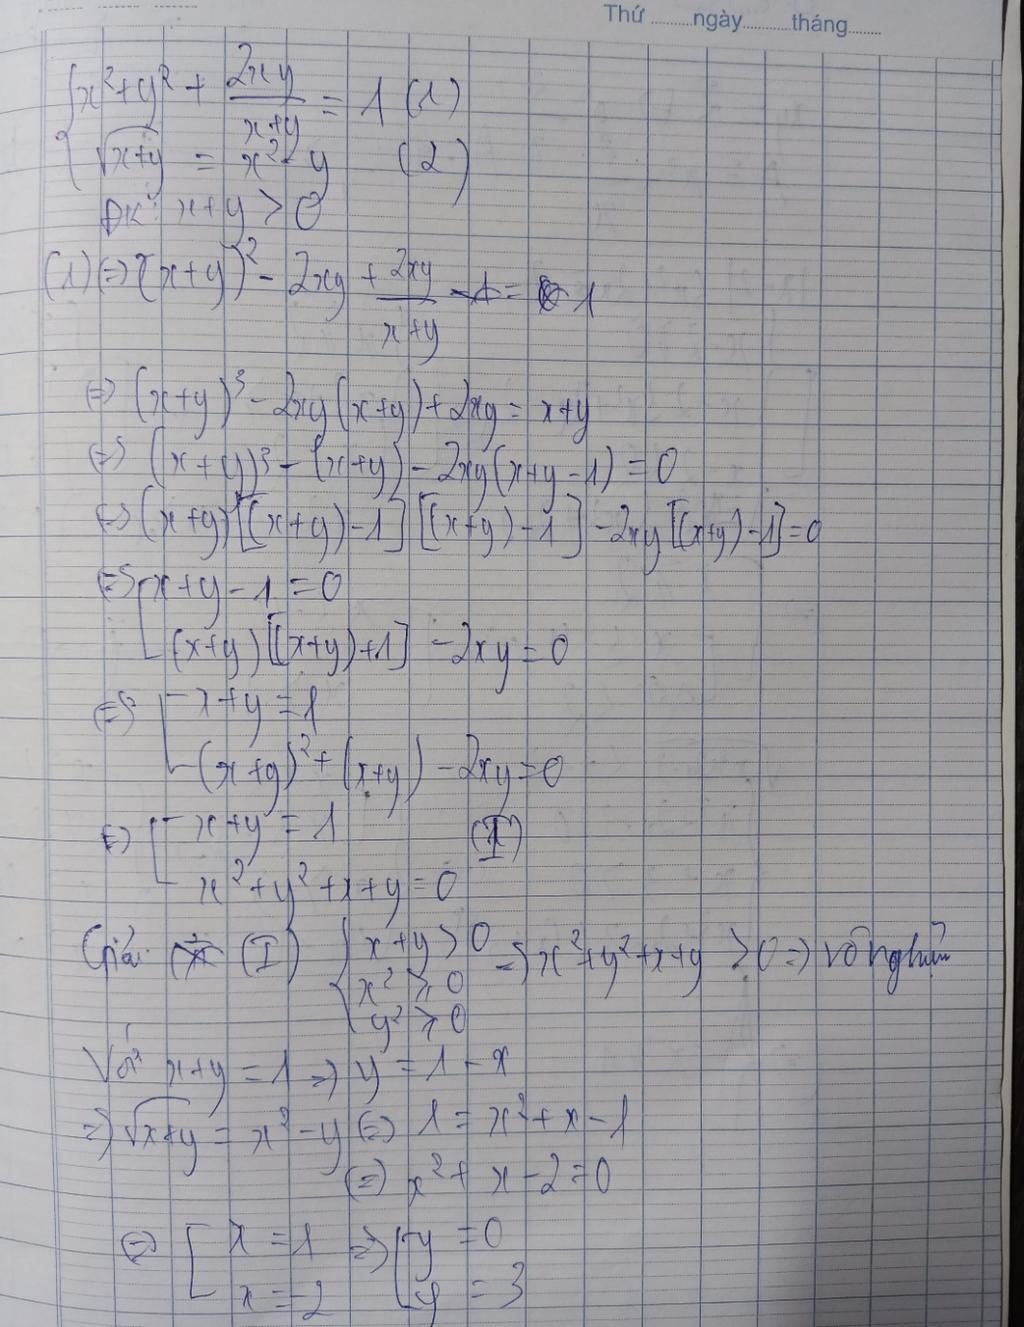 Thứ ........ngày........tháng........
{ x² + y² + 2xy/(x+y) = 1 (1)
{ √(x+y) = x² - y (2)
ĐK: x+y > 0
(1) (=) (x+y)² - 2xy + 2xy/(x+y) = 1
(=) (x+y)³ - 2xy(x+y) + 2xy = x+y
(=) (x+y)³ - (x+y) - 2xy(x+y-1) = 0
(=) (x+y)[(x+y)-1][(x+y)-1] - 2xy[(x+y)-1] = 0
(=) [ x+y-1 = 0
[ (x+y)[(x+y)+1] - 2xy = 0
(=) [ x+y = 1
[ (x+y)² + (x+y) - 2xy = 0
(=) [ x+y = 1 (I)
[ x² + y² + x + y = 0
Giải (I) { x+y > 0 => x² + y² + x + y > 0 => vô nghiệm
{ x² ≥ 0
{ y² ≥ 0
Với x+y = 1 => y = 1 - x
=> √(x+y) = x² - y (=) 1 = x² + x - 1
(=) x² + x - 2 = 0
(=) [ x = 1 => [ y = 0
[ x = -2 [ y = 3